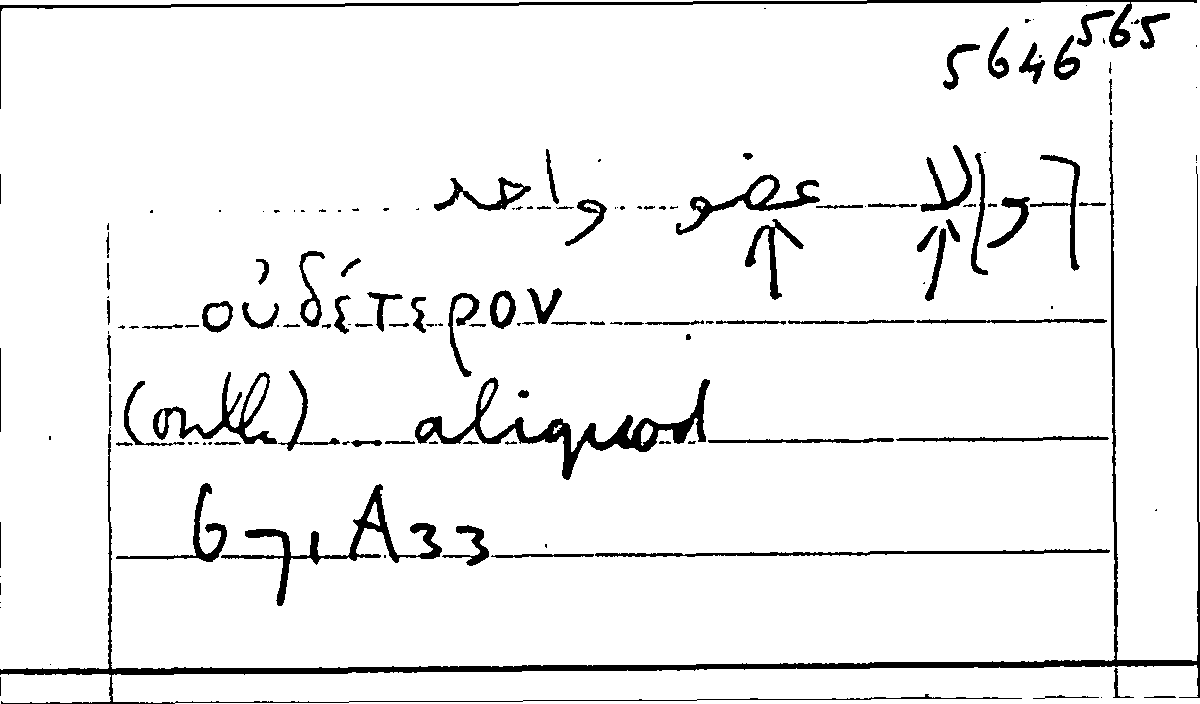 5646 565
[و] لا عضو واحد
↑ ↑
οὐδέτερον
... aliquod
671A33